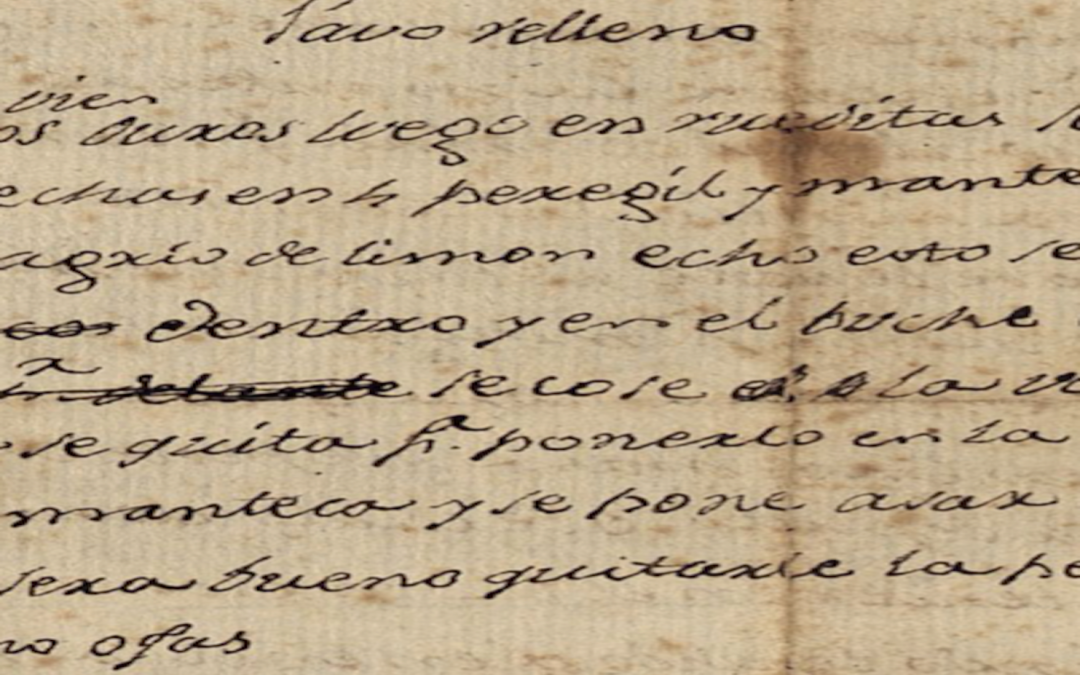 Pavo relleno
vien
os duxos luego en rueditas
echas en h pexegil y mante
agrio de limon echo esto se
dentxo y en el buche
delante se cose la
se quita pa. ponexlo en la
manteca y se pone asax
sexa bueno quitaxle la pe
no ojas